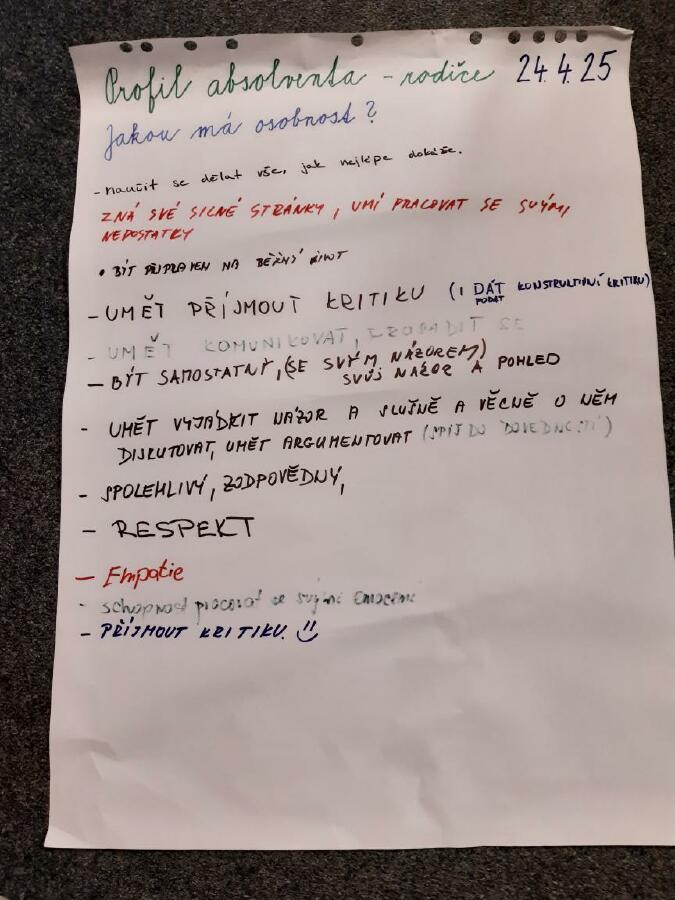 Profil absolventa - rodiče 24.4.25
Jakou má osobnost?
- naučit se dělat vše, jak nejlépe dokáže.
ZNÁ SVÉ SILNÉ STRÁNKY, UMÍ PRACOVAT SE SVÝMI
NEDOSTATKY
• BÝT PŘIPRAVEN NA BĚŽNÝ ŽIVOT
- UMĚT PŘÍJMOUT KRITIKU (I DÁT KONSTRUKTIVNÍ KRITIKU)
PODAT
- UMĚT KOMUNIKOVAT, SE
- BÝT SAMOSTATNÝ, (SE SVÝM NÁZOREM)
SVŮJ NÁZOR A POHLED
- UMĚT VYJÁDŘIT NÁZOR A SLUŠNĚ A VĚCNĚ O NĚM
DISKUTOVAT, UMĚT ARGUMENTOVAT (SPÍŠ DO DOVEDNOSTÍ)
- SPOLEHLIVÝ, ZODPOVĚDNÝ,
- RESPEKT
- Empatie
- schopnost pracovat se svými emocemi
- PŘÍJMOUT KRITIKU.